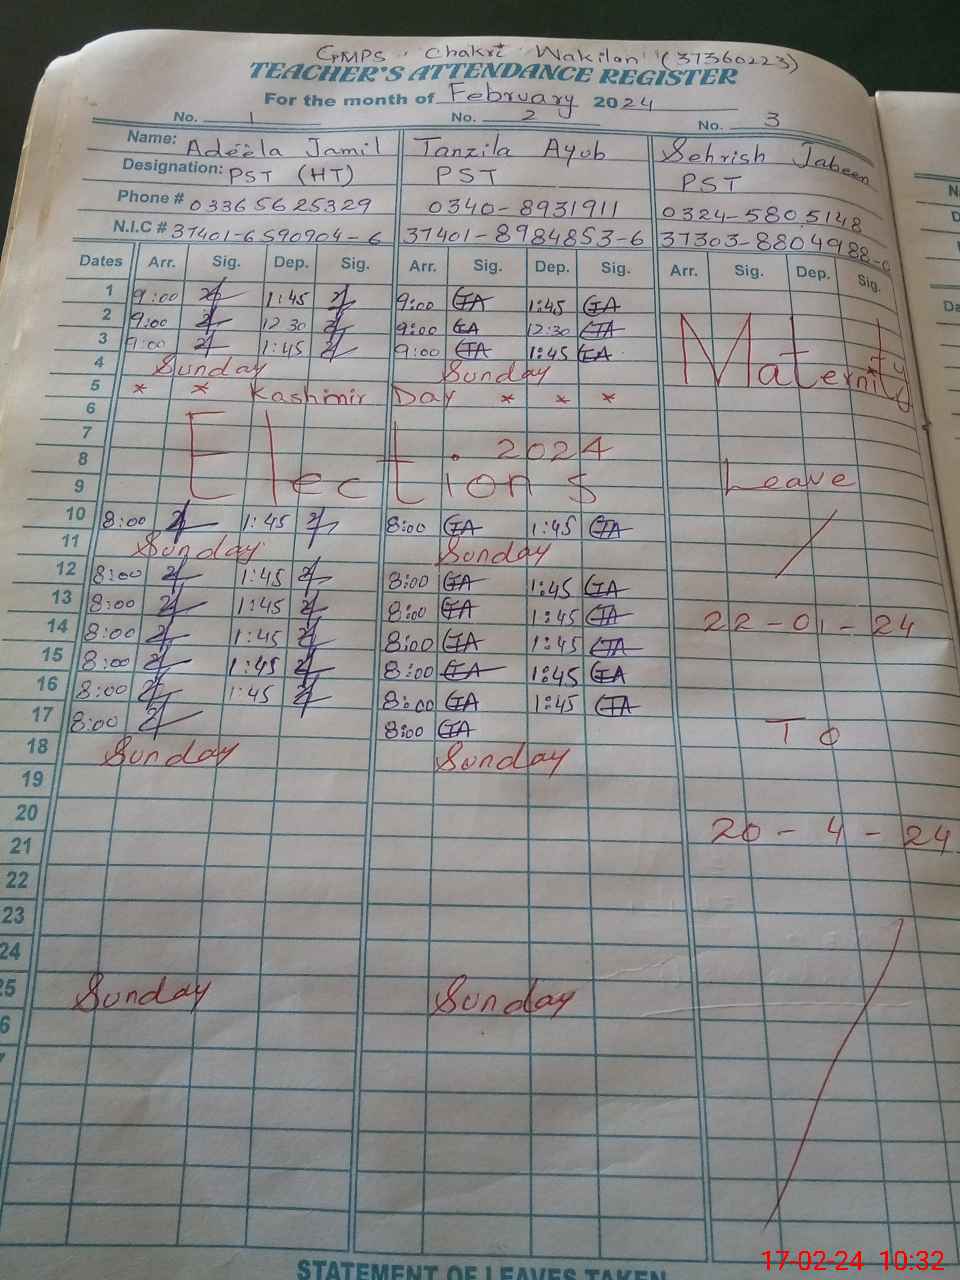 GMPS . Chakri Wakilan (37360223)
TEACHER'S ATTENDANCE REGISTER
For the month of February 2024
No. 1 No. 2 No. 3
Name: Adeela Jamil Tanzila Ayub Sehrish Jabeen
Designation: PST (HT) PST PST
Phone # 03365625329 0340-8931911 0324-5805148
N.I.C # 37401-6590904-6 37401-8984853-6 37303-8804988-0
Dates Arr. Sig. Dep. Sig. Arr. Sig. Dep. Sig. Arr. Sig. Dep. Sig.
1 9:00 1:45 9:00 TA 1:45 TA
2 9:00 12:30 9:00 TA 12:30 TA
3 9:00 1:45 9:00 TA 1:45 TA Maternity
4 Sunday Sunday
5 * * Kashmir Day * * *
6
7
8 2024
9 Elections Leave
10 8:00 1:45 8:00 TA 1:45 TA
11 Sunday Sunday
12 8:00 1:45 8:00 TA 1:45 TA
13 8:00 1:45 8:00 TA 1:45 TA
14 8:00 1:45 8:00 TA 1:45 TA 22-01-24
15 8:00 1:45 8:00 TA 1:45 TA
16 8:00 1:45 8:00 TA 1:45 TA
17 8:00 8:00 TA To
18 Sunday Sunday
19
20 20-4-24
21
22
23
24
25 Sunday Sunday
6
7
STATEMENT OF LEAVES TAKEN
17-02-24 10:32